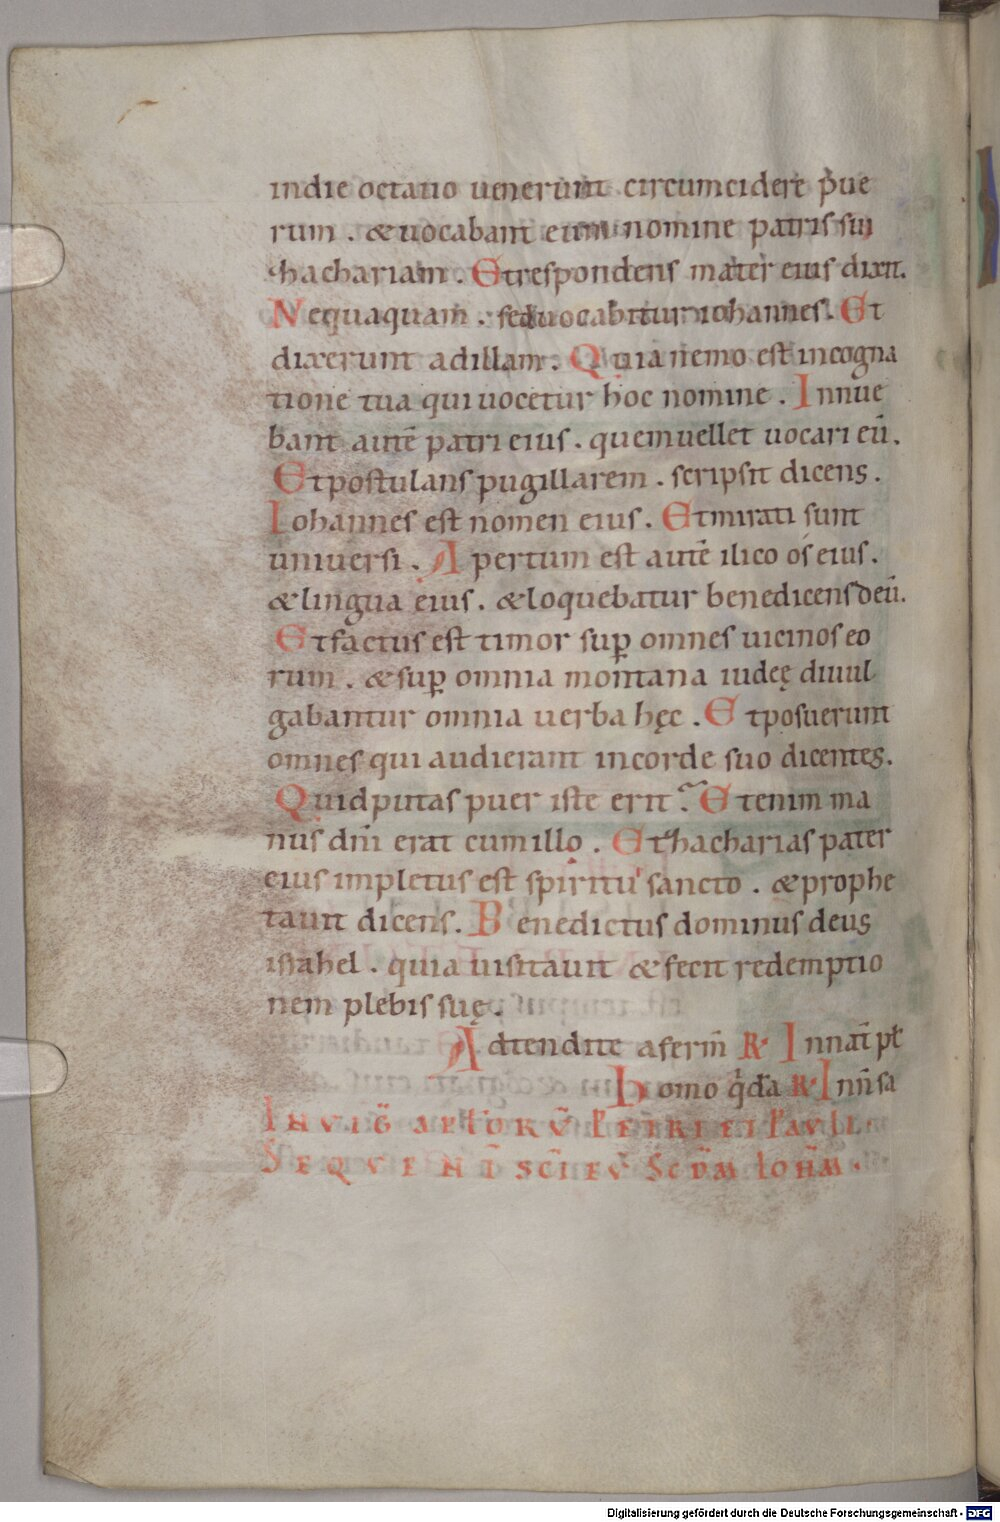 indie octauo uenerunt circumcidere pue
rum . & uocabant eum nomine patris sui
Zhachariam . Et respondens mater eius dixit.
Nequaquam . sed uocabitur iohannes. Et
dixerunt ad illam. Quia nemo est in cogna
tione tua qui uocetur hoc nomine . Innue
bant autē patri eius . quem uellet uocari eū.
Et postulans pugillarem . scripsit dicens .
Iohannes est nomen eius . Et mirati sunt
uniuersi . Apertum est autē ilico os eius .
& lingua eius . & loquebatur benedicens deū.
Et factus est timor sup omnes uicinos eo
rum . & sup omnia montana iudeę diuul
gabantur omnia uerba hęc . Et posuerunt
omnes qui audierant in corde suo dicentes.
Quid putas puer iste erit ? Etenim ma
nus dn̄i erat cum illo . Et Zhacharias pater
eius impletus est spiritu sancto . & prophe
tauit dicens . Benedictus dominus deus
israhel . quia uisitauit & fecit redemptio
nem plebis suę .
Adtendite a ferm̄ R In nat̄ pl
Homo q̇da R In n̄ sa
IN VIG APL'ORV̄ PETRI ET PAVLI
SEQVENT̄ SC̄I EV̄ SCDM IOH̄M .
Digitalisierung gefördert durch die Deutsche Forschungsgemeinschaft - DFG